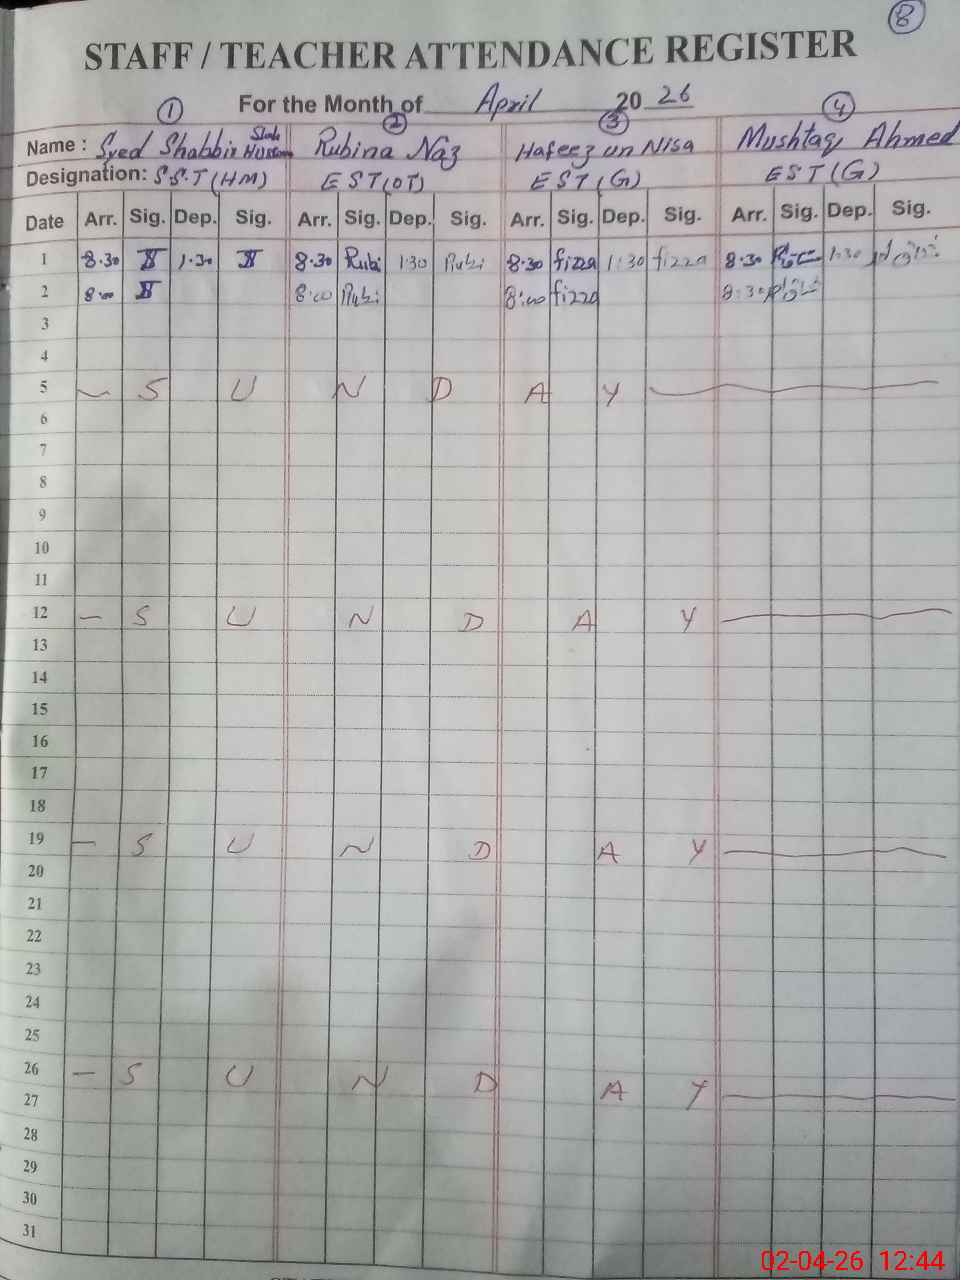 8
STAFF / TEACHER ATTENDANCE REGISTER
For the Month of April 2026
1 2 3 4
Name : Syed Shabbir Hussain Shah Rubina Naz Hafeez un Nisa Mushtaq Ahmed
Designation: S.S.T (HM) EST(OT) EST(G) EST(G)
Date Arr. Sig. Dep. Sig. Arr. Sig. Dep. Sig. Arr. Sig. Dep. Sig. Arr. Sig. Dep. Sig.
1 8.30 1.30 8.30 Rubi 1:30 Rubi 8.30 fizza 1:30 fizza 8.30 1:30
2 8:00 8:00 Rubi 8:00 fizza 8:30
3
4
5 — S U N D A Y —
6
7
8
9
10
11
12 — S U N D A Y —
13
14
15
16
17
18
19 — S U N D A Y —
20
21
22
23
24
25
26 — S U N D A Y —
27
28
29
30
31
02-04-26 12:44